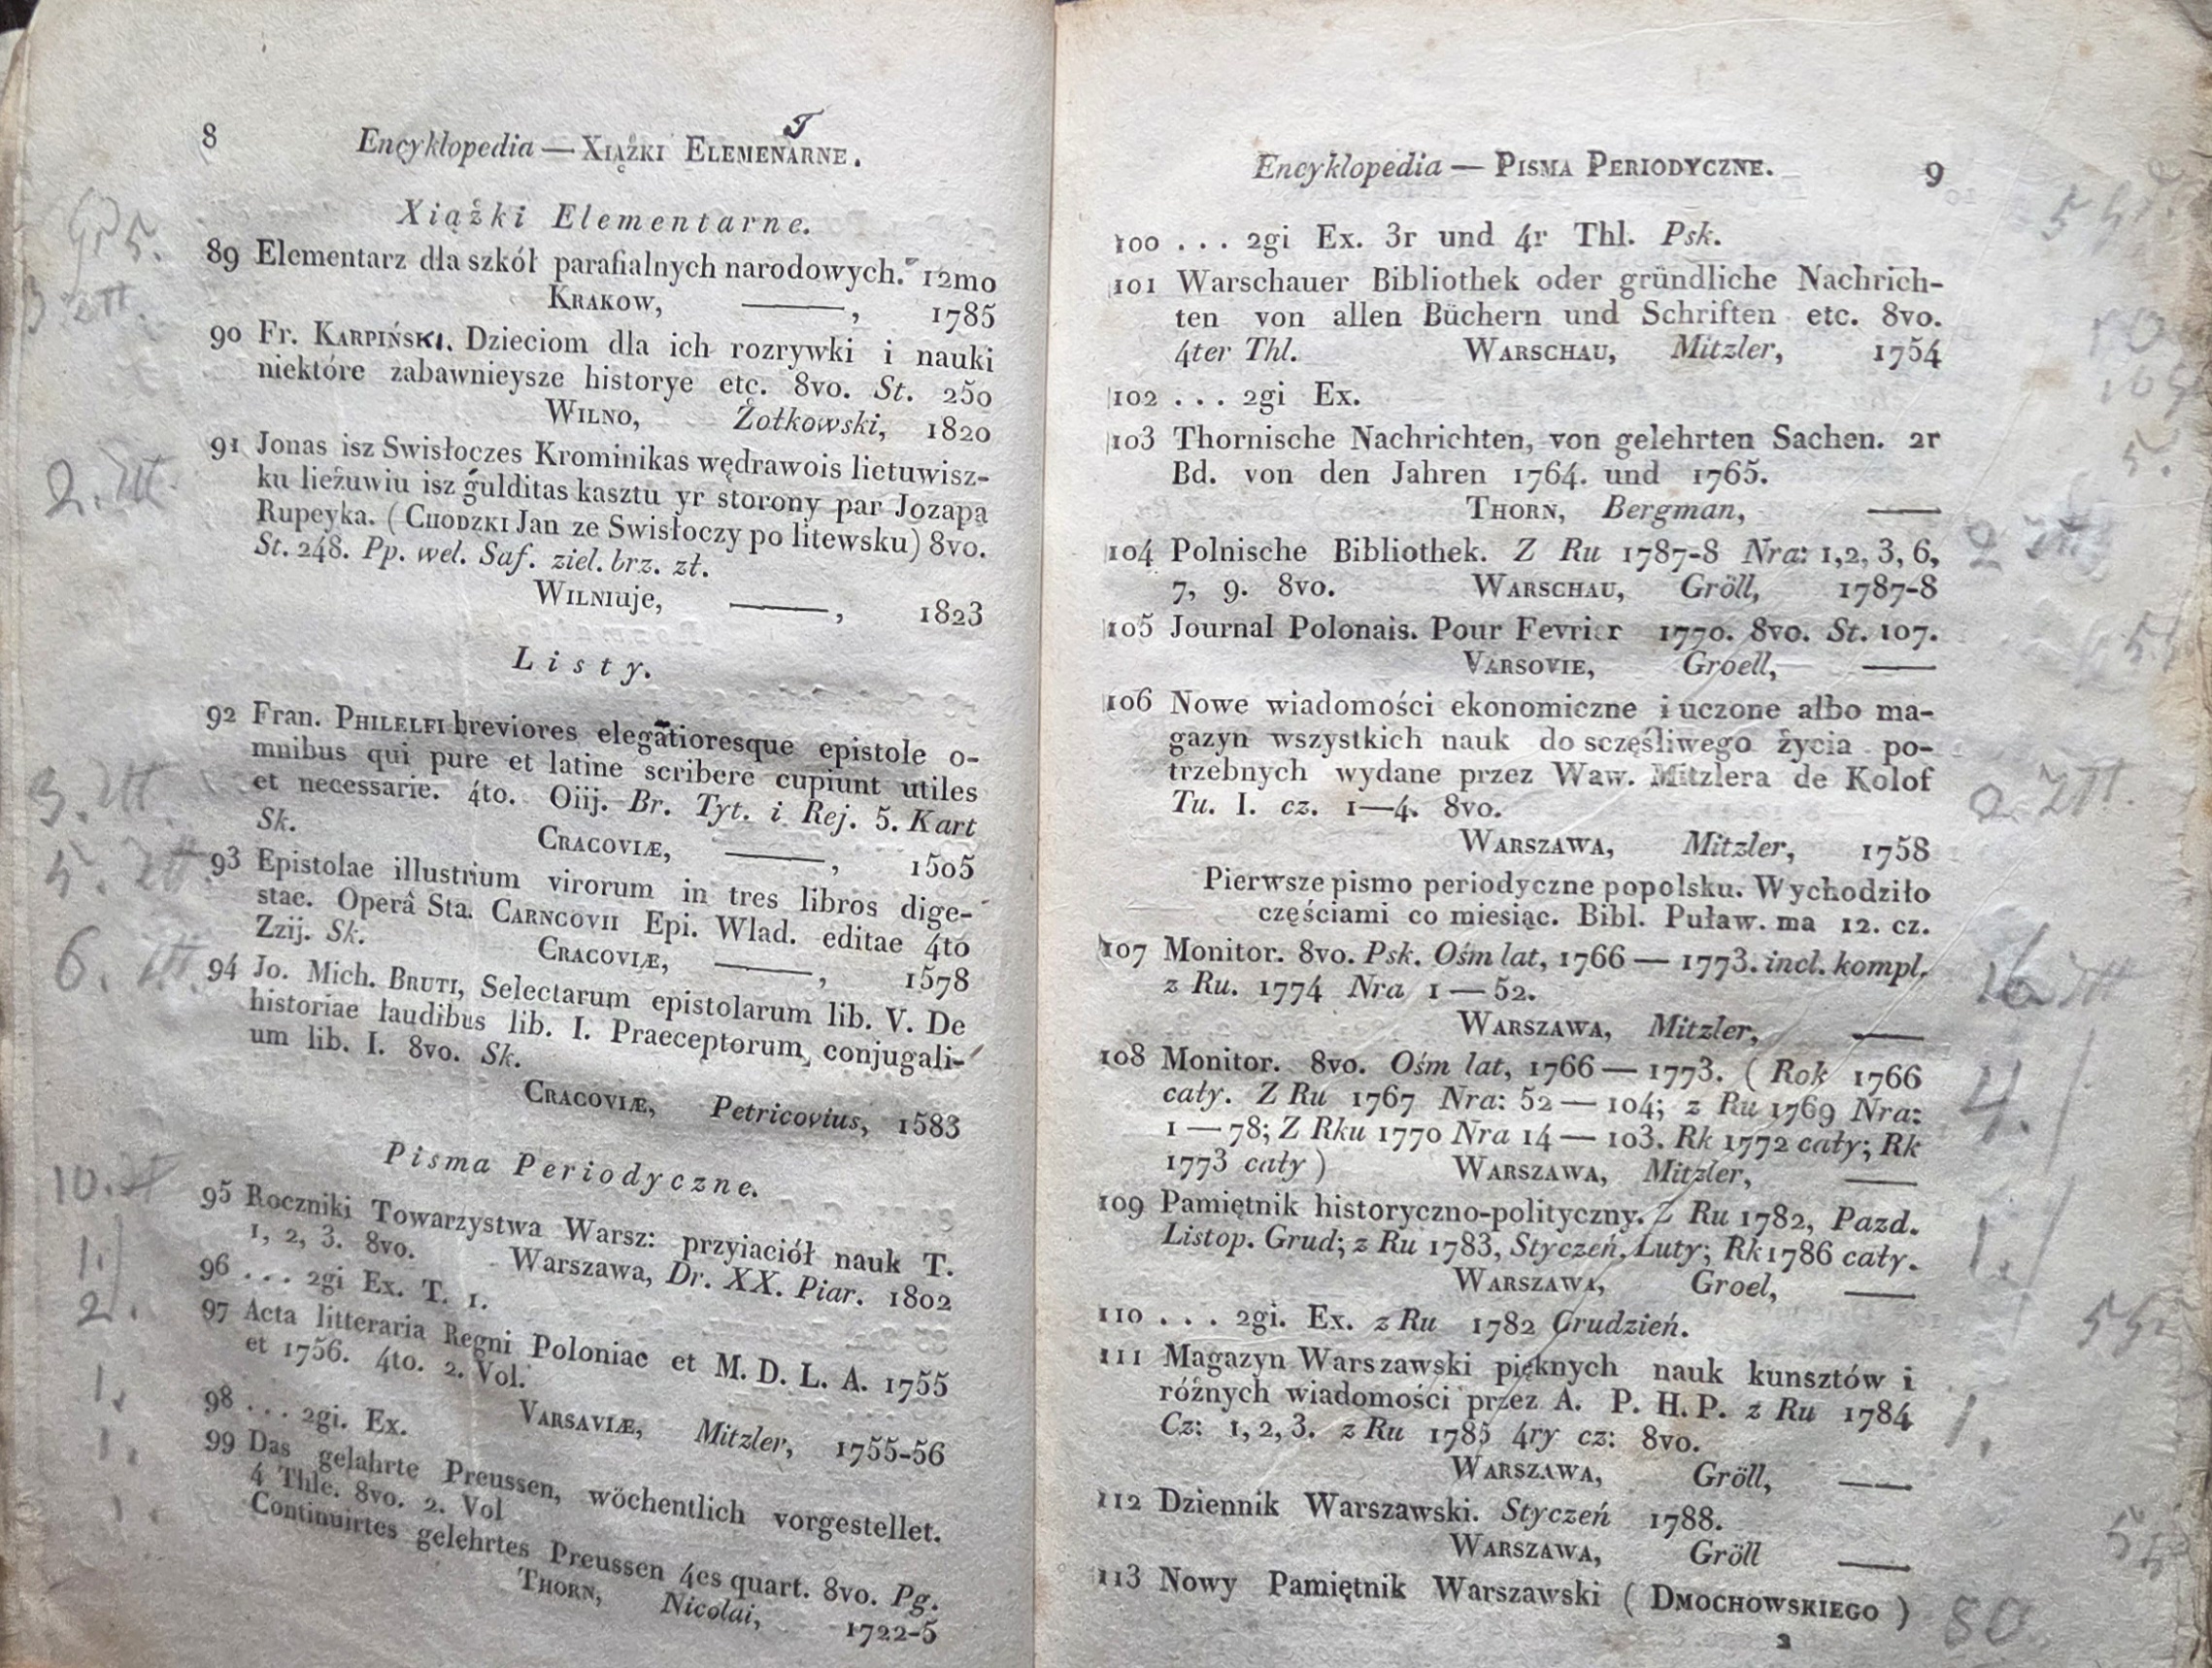 8 Encyklopedia — Xiążki Elemenarne.
T
Xiążki Elementarne.
gr 5.
89 Elementarz dla szkół parafialnych narodowych. 12mo
Krakow, ———, 1785
3 złt.
90 Fr. Karpiński. Dzieciom dla ich rozrywki i nauki
niektóre zabawnieysze historye etc. 8vo. St. 250
Wilno, Żołkowski, 1820
91 Jonas isz Swisłoczes Krominikas wędrawois lietuwisz-
2. złt.
ku liežuwiu isz gulditas kasztu yr storony par Jozapa
Rupeyka. (Chodzki Jan ze Swisłoczy po litewsku) 8vo.
St. 248. Pp. wel. Saf. ziel. brz. zł.
Wilniuje, ———, 1823
Listy.
92 Fran. Philelfi breviores elegãtioresque epistole o-
mnibus qui pure et latine scribere cupiunt utiles
3. złt.
et necessarie. 4to. Oiij. Br. Tyt. i Rej. 5. Kart
Sk. Cracoviæ, ———, 1505
5. złt.
93 Epistolae illustrium virorum in tres libros dige-
stae. Operâ Sta. Carncovii Epi. Wlad. editae 4to
Zzij. Sk. Cracoviæ, ———, 1578
6. złt.
94 Jo. Mich. Bruti, Selectarum epistolarum lib. V. De
historiae laudibus lib. I. Praeceptorum, conjugali-
um lib. I. 8vo. Sk.
Cracoviæ, Petricovius, 1583
Pisma Periodyczne.
10.
95 Roczniki Towarzystwa Warsz: przyiaciół nauk T.
1, 2, 3. 8vo. Warszawa, Dr. XX. Piar. 1802
1.
96 . . . 2gi Ex. T. 1.
2.
97 Acta litteraria Regni Poloniae et M. D. L. A. 1755
et 1756. 4to. 2. Vol.
Varsaviæ, Mitzler, 1755-56
1.
98 . . . 2gi. Ex.
1.
99 Das gelahrte Preussen, wöchentlich vorgestellet.
4 Thle. 8vo. 2. Vol
1.
Continuirtes gelehrtes Preussen 4es quart. 8vo. Pg.
Thorn, Nicolai, 1722-5
Encyklopedia — Pisma Periodyczne. 9
100 . . . 2gi Ex. 3r und 4r Thl. Psk.
5 gr.
101 Warschauer Bibliothek oder gründliche Nachrich-
ten von allen Büchern und Schriften etc. 8vo.
4ter Thl. Warschau, Mitzler, 1754
10
102 . . . 2gi Ex.
10 g
103 Thornische Nachrichten, von gelehrten Sachen. 2r
5.
Bd. von den Jahren 1764. und 1765.
Thorn, Bergman, ———
104 Polnische Bibliothek. Z Ru 1787-8 Nra: 1,2, 3, 6,
2 złt.
7, 9. 8vo. Warschau, Gröll, 1787-8
105 Journal Polonais. Pour Fevrier 1770. 8vo. St. 107.
Varsovie, Groell, ———
106 Nowe wiadomości ekonomiczne i uczone albo ma-
gazyn wszystkich nauk do sczęśliwego życia po-
trzebnych wydane przez Waw. Mitzlera de Kolof
2. złt.
Tu. I. cz. 1—4. 8vo.
Warszawa, Mitzler, 1758
Pierwsze pismo periodyczne popolsku. Wychodziło
częściami co miesiąc. Bibl. Puław. ma 12. cz.
107 Monitor. 8vo. Psk. Ośm lat, 1766 — 1773. incl. kompl.
z Ru. 1774 Nra 1 — 52.
Warszawa, Mitzler, ———
108 Monitor. 8vo. Ośm lat, 1766 — 1773. ( Rok 1766
4.
cały. Z Ru 1767 Nra: 52 — 104; z Ru 1769 Nra:
1 — 78; Z Rku 1770 Nra 14 — 103. Rk 1772 cały; Rk
1773 cały ) Warszawa, Mitzler, ———
109 Pamiętnik historyczno-polityczny. Z Ru 1782, Pazd.
1.
Listop. Grud; z Ru 1783, Styczeń, Luty; Rk 1786 cały.
Warszawa, Groel, ———
110 . . . 2gi. Ex. z Ru 1782 Grudzień.
5 gr
111 Magazyn Warszawski pięknych nauk kunsztów i
różnych wiadomości przez A. P. H. P. z Ru 1784
1.
Cz: 1, 2, 3. z Ru 1785 4ry cz: 8vo.
Warszawa, Gröll, ———
112 Dziennik Warszawski. Styczeń 1788.
Warszawa, Gröll ———
113 Nowy Pamiętnik Warszawski ( Dmochowskiego )
80.
2